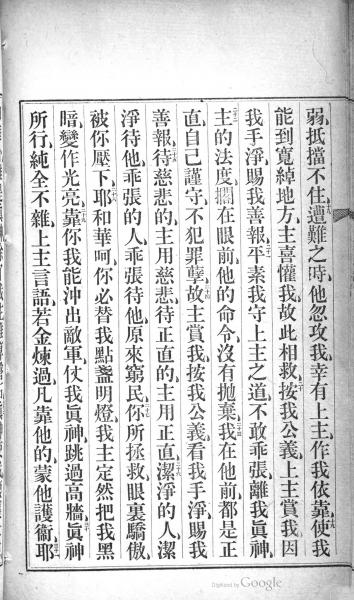 弱、抵擋不住、遭難之時、他忽攻我、幸有上主作我依靠、使我
能到寬綽地方、主喜懽我、故此相救、按我公義、上主賞我、因
我手淨、賜我善報、平素我守上主之道、不敢乖張、離我眞神、
主的法度、擱在眼前、他的命令、沒有拋棄、我在他前、都是正
直、自己謹守、不犯罪孽、故主賞我、按我公義、看我手淨、賜我
善報、待慈悲的、主用慈悲、待正直的、主用正直、潔淨的人、潔
淨待他、乖張的人、乖張待他、原來窮民、你所拯救、眼裏驕傲、
被你壓下、耶和華呵、你必替我、點盞明燈、我主定然、把我黑
暗、變作光亮、靠你我能、沖出敵軍、仗我眞神、跳過高牆、眞神
所行、純全不雜、上主言語、若金煉過、凡靠他的、蒙他護衞、耶
Digitized by Google